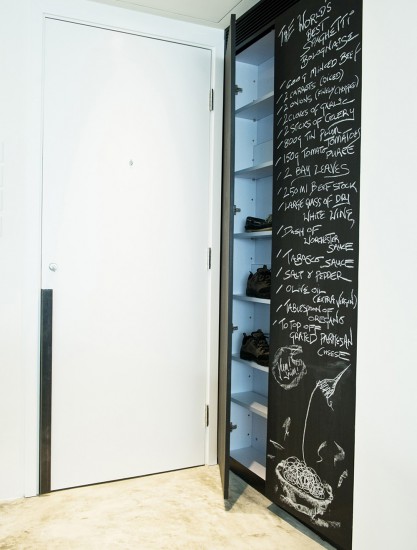 THE WORLD'S
BEST
SPAGHETTI
BOLOGNAISE
/ 600g MINCED BEEF
/ 2 CARROTS (DICED)
/ 2 ONIONS (FINELY CHOPPED)
/ 2 CLOVES OF GARLIC
/ 2 STICKS OF CELERY
/ 800g TIN PLUM
TOMATOES
/ 150g TOMATO PURÉE
/ 2 BAY LEAVES
/ 250 ml BEEF STOCK
/ LARGE GLASS OF DRY
WHITE WINE
/ DASH OF
WORCHESTER
SAUCE
/ TABASCO SAUCE
/ SALT & PEPPER
/ OLIVE OIL
(EXTRA VIRGIN)
/ TABLESPOON OF
OREGANO
/ TO TOP OFF
GRATED PARMESAN
CHEESE
Yum!